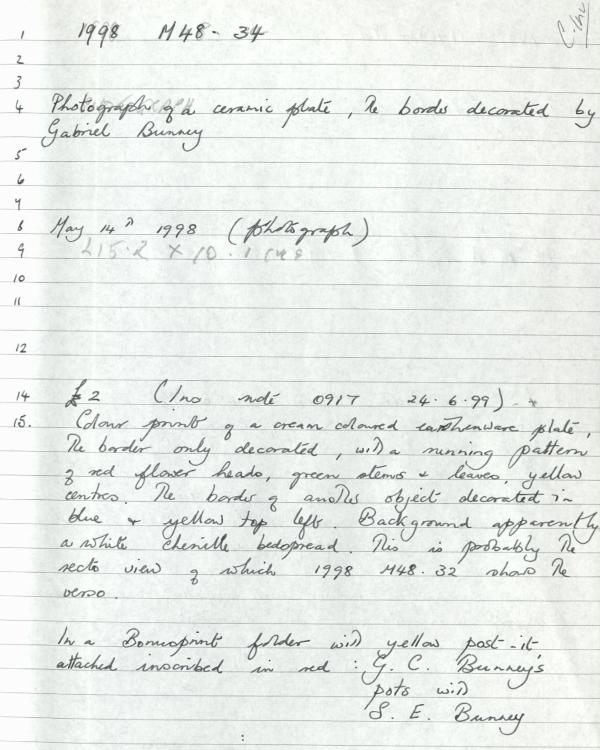 C. Inv
1 1998 M48 - 34
2
3
4 Photograph of a ceramic plate, The border decorated by
Gabriel Bunney
5
6
7
8 May 14th 1998 (photograph)
9 L15.2 X 10.1 cms
10
11
12
14 £2 (Ino note 0917 24.6.99)
15. Colour print of a cream coloured earthenware plate,
The border only decorated, with a running pattern
of red flower heads, green stems & leaves, yellow
centres. The border of another object decorated in
blue & yellow top left. Background apparently
a white chenille bedspread. This is probably the
recto view of which 1998 M48.32 shows the
verso.
In a Bonusprint folder with yellow post-it
attached inscribed in red : G. C. Bunney's
pots with
S. E. Bunney
: